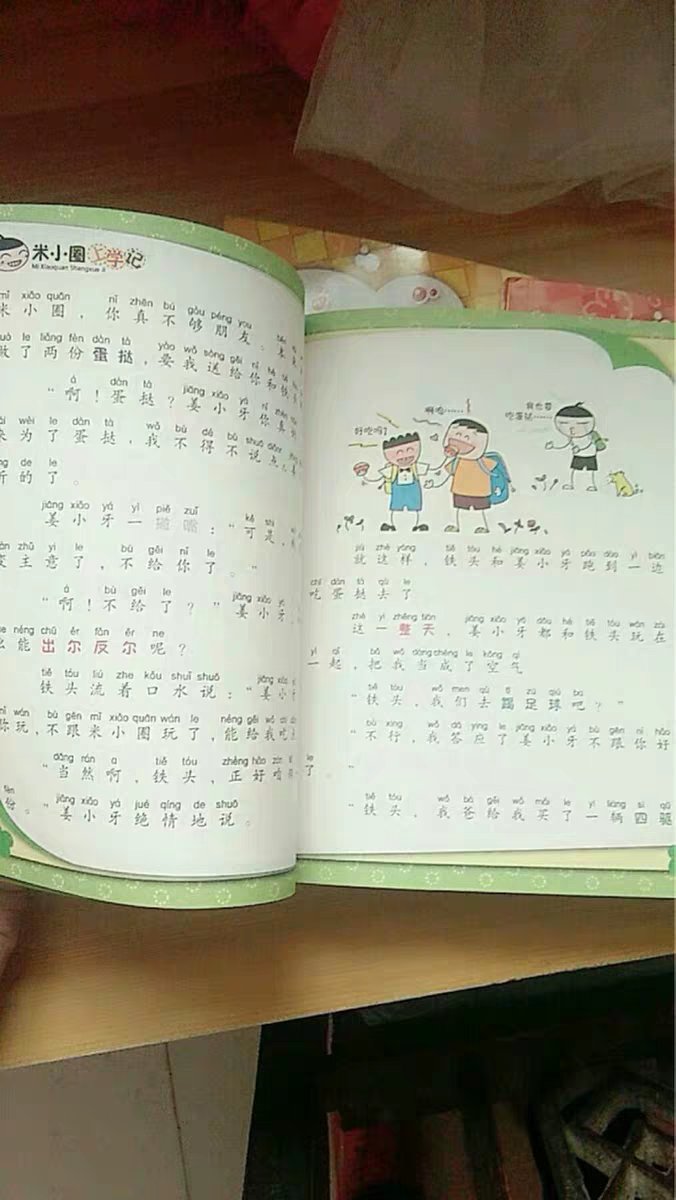 米小圈上学记
Mi Xiaoquan Shangxue Ji
mǐ xiǎo quān nǐ zhēn bú gòu péng you
米小圈，你真不够朋友。
le liǎng fèn dàn tà yào wǒ sòng gěi nǐ hé
做了两份蛋挞，要我送给你和
á dàn tà jiāng xiǎo yá nǐ zhēn
“啊！蛋挞？姜小牙你真
wèi le dàn tà wǒ bù dé bù shuō diǎn
来为了蛋挞，我不得不说点
de le
听的了。
jiāng xiǎo yá yì piě zuǐ kě shì
姜小牙一撇嘴：“可是，
zhǔ yi le bù gěi nǐ le
变主意了，不给你了。”
á bù gěi le jiāng xiǎo yá
“啊！不给了？”姜小牙
néng chū ěr fǎn ěr ne
能出尔反尔呢？
tiě tóu liú zhe kǒu shuǐ shuō jiāng xiǎo
铁头流着口水说：“姜小
nǐ wán bù gēn mǐ xiǎo quān wán le néng gěi wǒ
你玩，不跟米小圈玩了，能给我吃
dāng rán a tiě tóu zhèng hǎo
“当然啊，铁头，正好
fèn jiāng xiǎo yá jué qíng de shuō
份。”姜小牙绝情地说。
好吃吗？
啊呜……
我也要
吃蛋挞……
jiù zhè yàng tiě tóu hé jiāng xiǎo yá pǎo dào yì biān
就这样，铁头和姜小牙跑到一边
chī dàn tà qù le
吃蛋挞去了
zhè yì zhěng tiān jiāng xiǎo yá dōu hé tiě tóu wán zài
这一整天，姜小牙都和铁头玩在
yì qǐ bǎ wǒ dàng chéng le kōng qì
一起，把我当成了空气
tiě tóu wǒ men qù tī zú qiú ba
“铁头，我们去踢足球吧？”
bù xíng wǒ dā ying le jiāng xiǎo yá bù gēn nǐ hǎo
“不行，我答应了姜小牙不跟你好
了 ”
tiě tóu wǒ bà gěi wǒ mǎi le yí liàng sì qū
“铁头，我爸给我买了一辆四驱